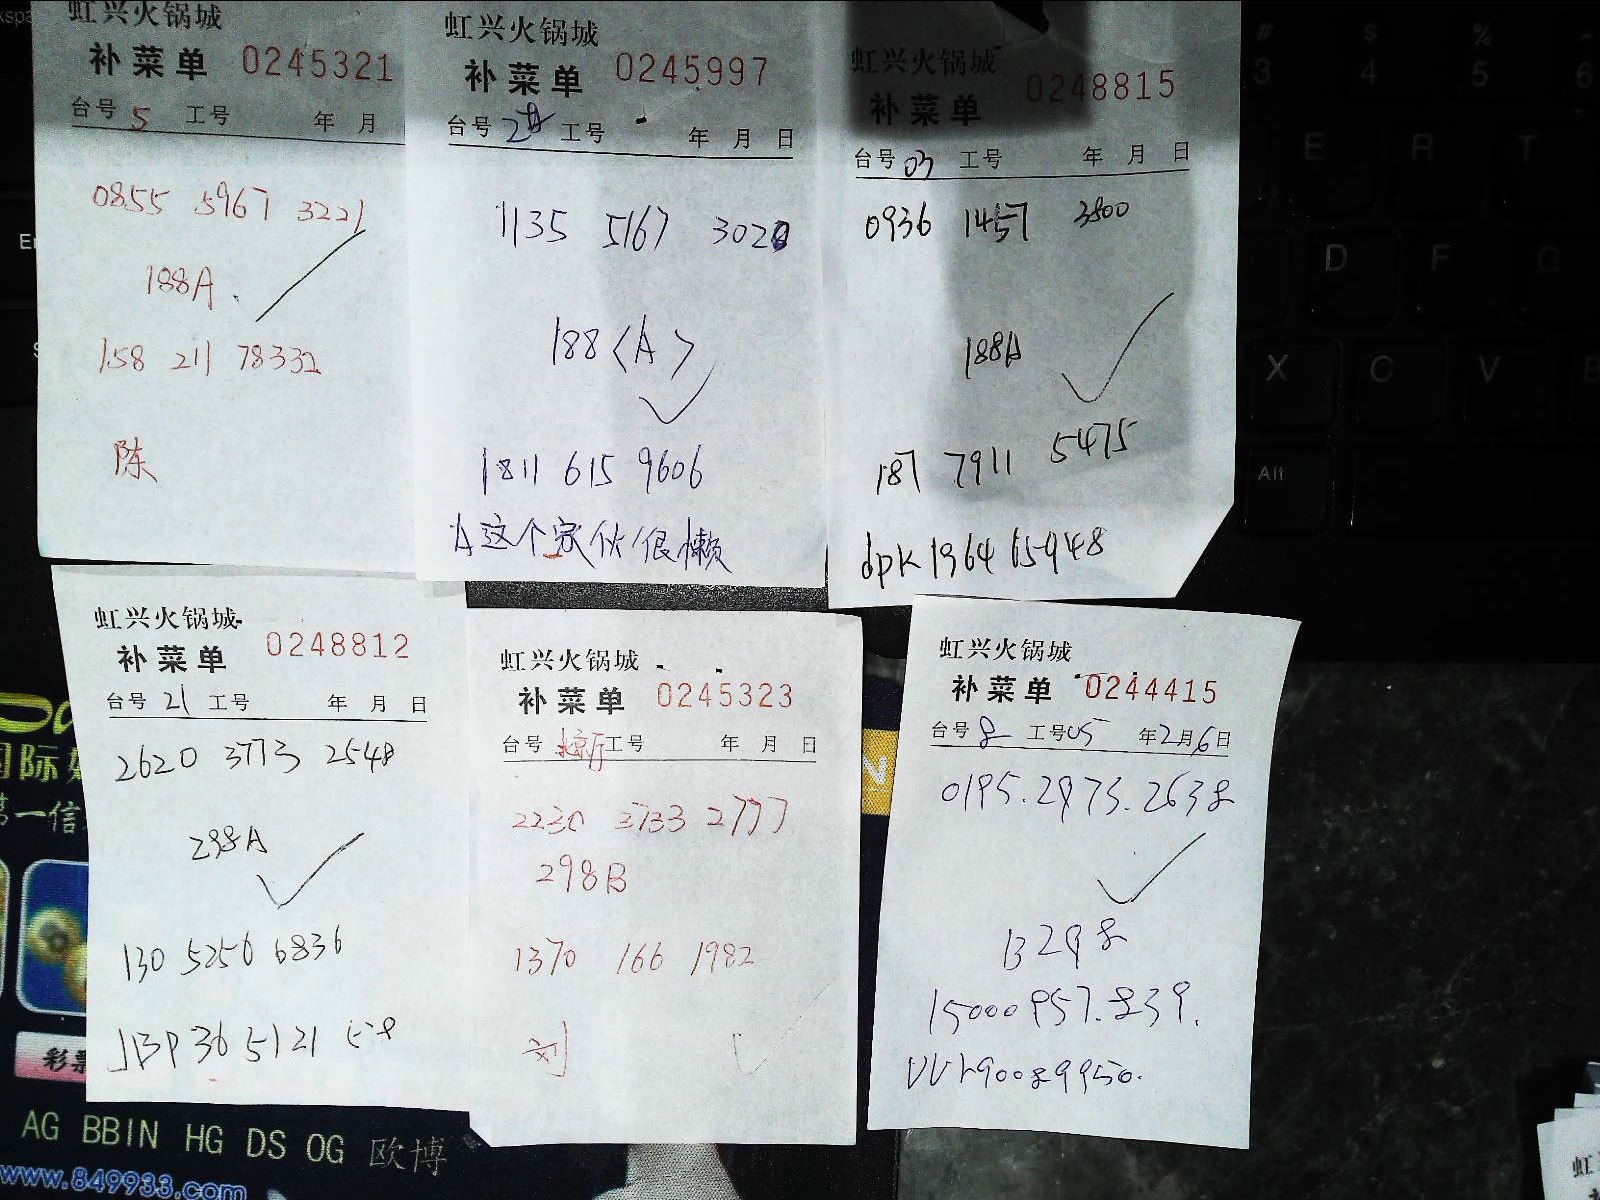 虹兴火锅城
补菜单 0245321
台号 5 工号 年 月
0855 5967 3221
188A.
158 211 78332
陈
虹兴火锅城
补菜单 0245997
台号 工号 年 月 日
1135 5167 3020
188〈A〉
1811 615 9606
A这个家伙很懒
虹兴火锅城
补菜单 0248815
台号 03 工号 年 月 日
0936 1457 3800
188A
187 7911 5475
dpk1964 65948
虹兴火锅城
补菜单 0248812
台号 21 工号 年 月 日
2620 3773 2548
298A
130 5256 6836
36 5121
虹兴火锅城
补菜单 0245323
台号 工号 年 月 日
2230 3733 2777
298B
1370 166 1982
刘
虹兴火锅城
补菜单 0244415
台号 8 工号 05 年 2月6日
0195.2973.2638
B298
15000957.839.
# $ %
3 4 5 6
E R T
D F G
X C V
Alt
国际
第一信
彩票
AG BBIN HG DS OG 欧博
www.849933.com
虹